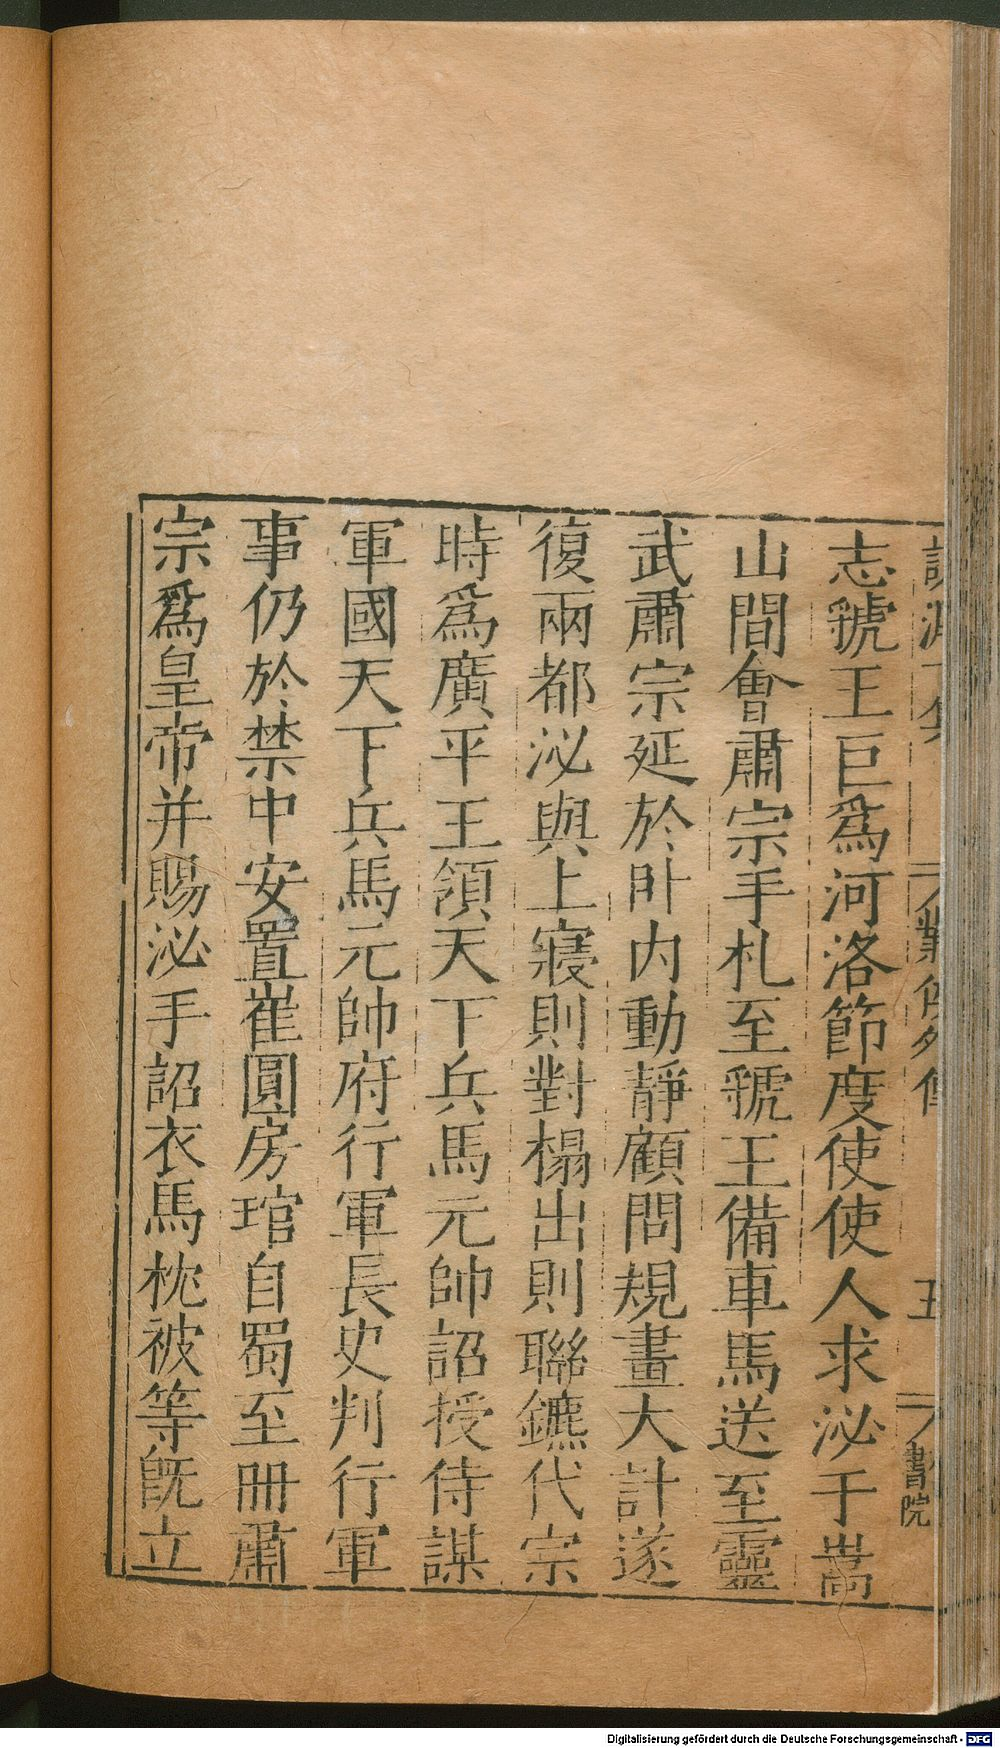 志虢王巨爲河洛節度使使人求泌于嵩
山間會肅宗手札至虢王備車馬送至靈
武肅宗延於卧内動靜顧問規畫大計遂
復兩都泌與上寢則對榻出則聯鑣代宗
時爲廣平王領天下兵馬元帥詔授侍謀
軍國天下兵馬元帥府行軍長史判行軍
事仍於禁中安置崔圓房琯自蜀至册肅
宗爲皇帝并賜泌手詔衣馬枕被等旣立
五
書院
Digitalisierung gefördert durch die Deutsche Forschungsgemeinschaft - DFG